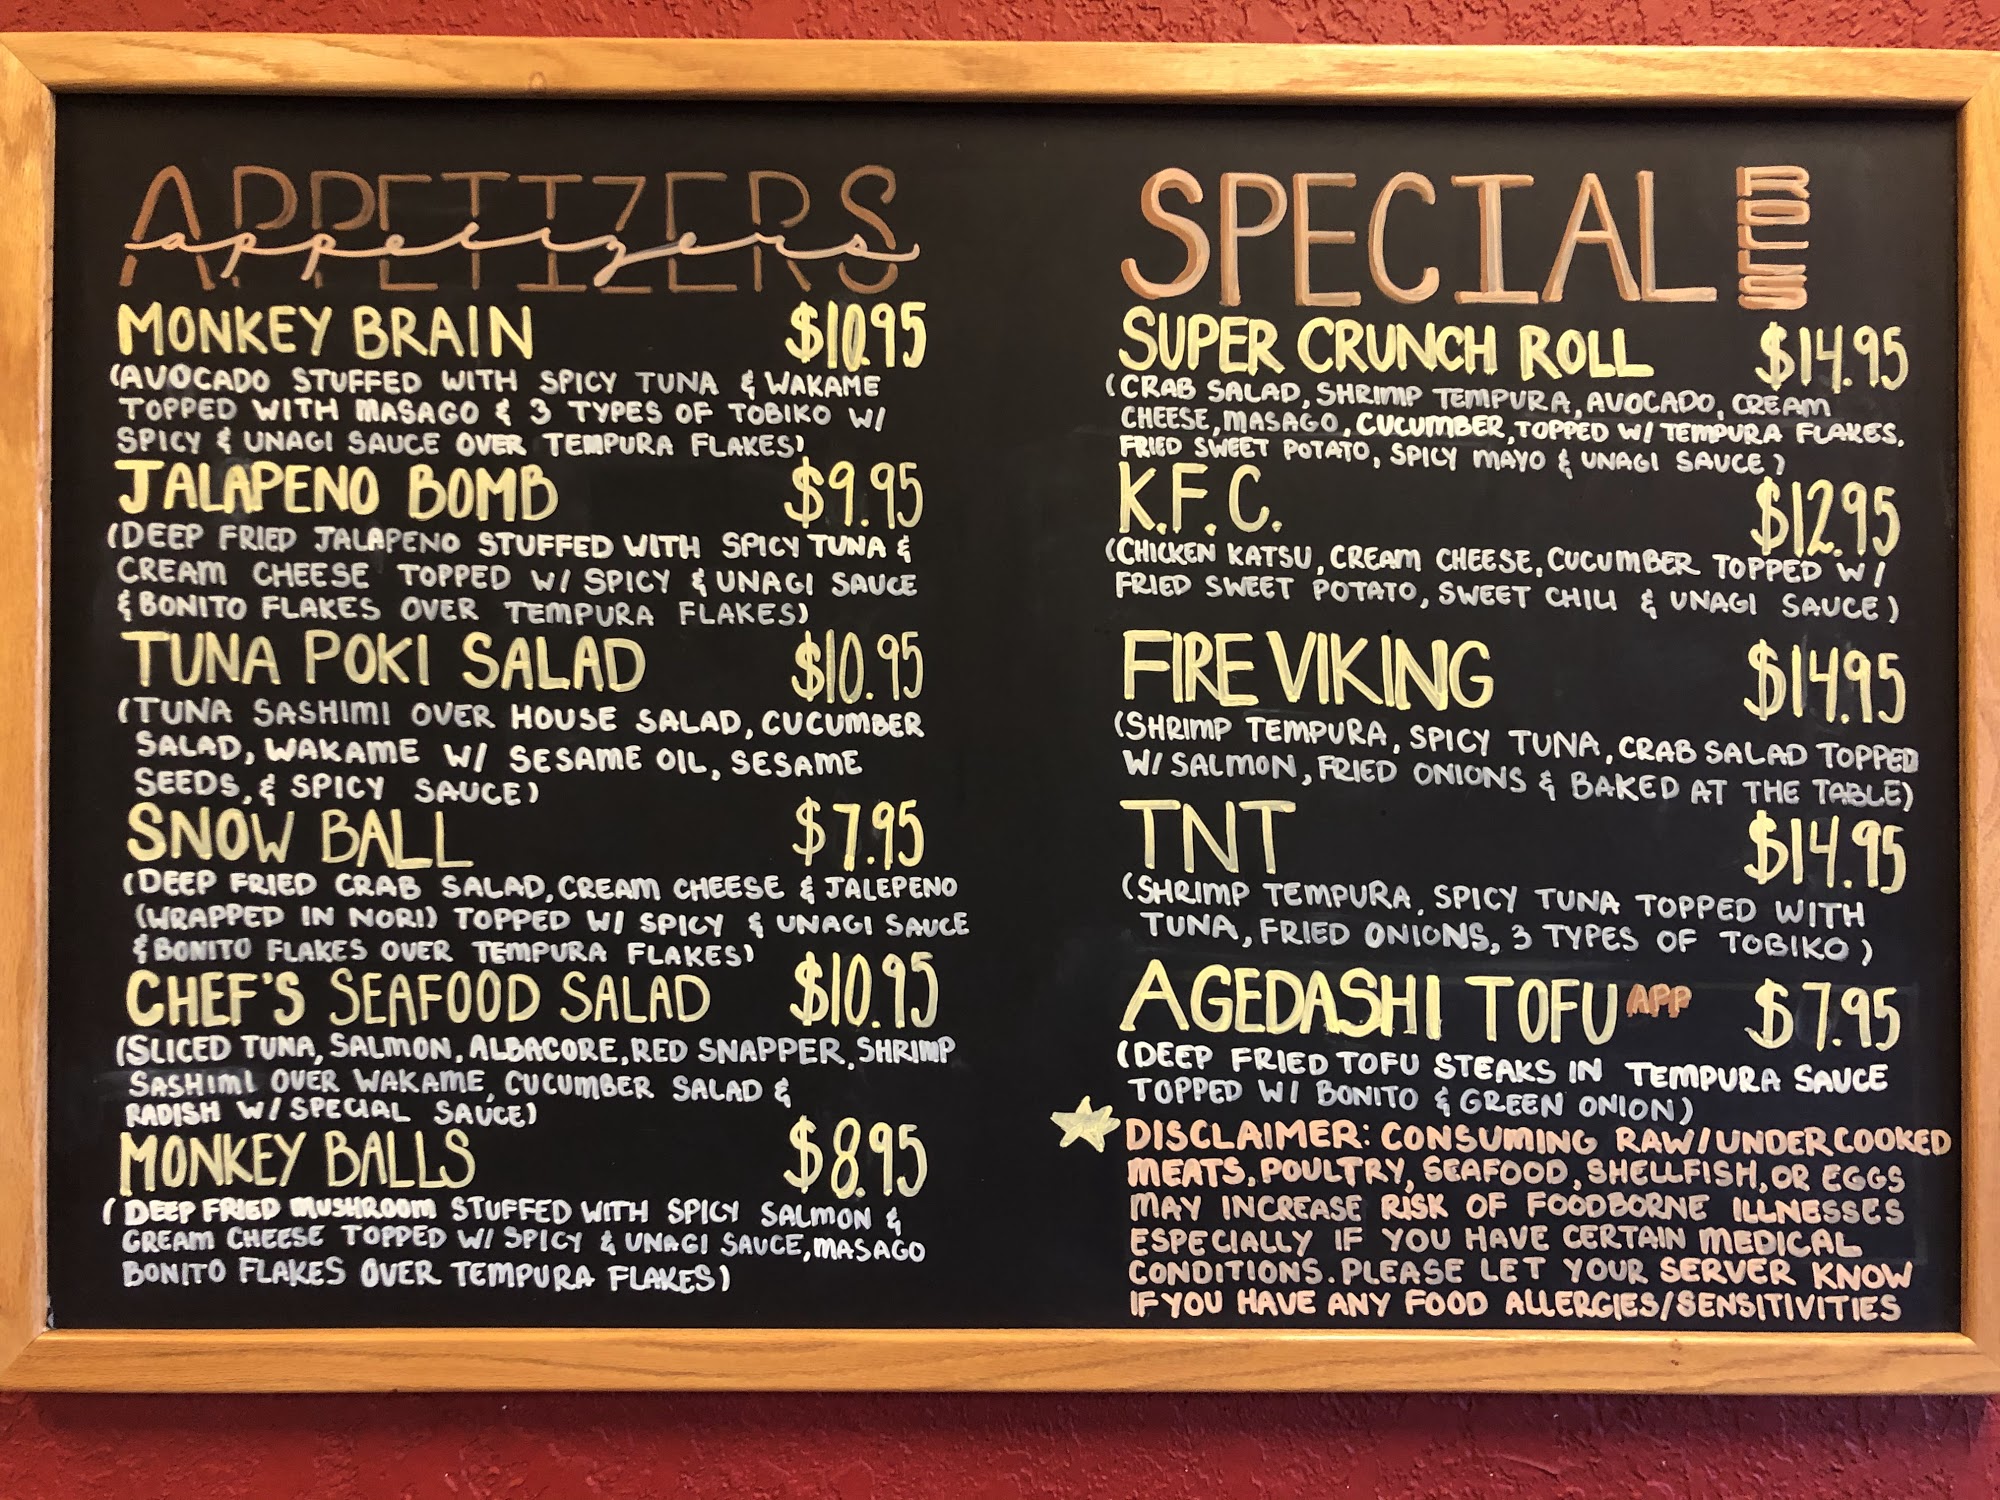 APPETIZERS
appetizers
MONKEY BRAIN $10.95
(AVOCADO STUFFED WITH SPICY TUNA & WAKAME
TOPPED WITH MASAGO & 3 TYPES OF TOBIKO W/
SPICY & UNAGI SAUCE OVER TEMPURA FLAKES)
JALAPENO BOMB $9.95
(DEEP FRIED JALAPENO STUFFED WITH SPICY TUNA &
CREAM CHEESE TOPPED W/ SPICY & UNAGI SAUCE
& BONITO FLAKES OVER TEMPURA FLAKES)
TUNA POKI SALAD $10.95
(TUNA SASHIMI OVER HOUSE SALAD, CUCUMBER
SALAD, WAKAME W/ SESAME OIL, SESAME
SEEDS, & SPICY SAUCE)
SNOW BALL $7.95
(DEEP FRIED CRAB SALAD, CREAM CHEESE & JALEPENO
(WRAPPED IN NORI) TOPPED W/ SPICY & UNAGI SAUCE
& BONITO FLAKES OVER TEMPURA FLAKES)
CHEF'S SEAFOOD SALAD $10.95
(SLICED TUNA, SALMON, ALBACORE, RED SNAPPER, SHRIMP
SASHIMI OVER WAKAME, CUCUMBER SALAD &
RADISH W/ SPECIAL SAUCE)
MONKEY BALLS $8.95
(DEEP FRIED MUSHROOM STUFFED WITH SPICY SALMON &
CREAM CHEESE TOPPED W/ SPICY & UNAGI SAUCE, MASAGO
BONITO FLAKES OVER TEMPURA FLAKES)
SPECIAL ROLLS
SUPER CRUNCH ROLL $14.95
(CRAB SALAD, SHRIMP TEMPURA, AVOCADO, CREAM
CHEESE, MASAGO, CUCUMBER, TOPPED W/ TEMPURA FLAKES,
FRIED SWEET POTATO, SPICY MAYO & UNAGI SAUCE)
K.F.C. $12.95
(CHICKEN KATSU, CREAM CHEESE, CUCUMBER TOPPED W/
FRIED SWEET POTATO, SWEET CHILI & UNAGI SAUCE)
FIRE VIKING $14.95
(SHRIMP TEMPURA, SPICY TUNA, CRAB SALAD TOPPED
W/ SALMON, FRIED ONIONS & BAKED AT THE TABLE)
TNT $14.95
(SHRIMP TEMPURA, SPICY TUNA TOPPED WITH
TUNA, FRIED ONIONS, 3 TYPES OF TOBIKO)
AGEDASHI TOFU APP $7.95
(DEEP FRIED TOFU STEAKS IN TEMPURA SAUCE
TOPPED W/ BONITO & GREEN ONION)
DISCLAIMER: CONSUMING RAW/UNDERCOOKED
MEATS, POULTRY, SEAFOOD, SHELLFISH, OR EGGS
MAY INCREASE RISK OF FOODBORNE ILLNESSES
ESPECIALLY IF YOU HAVE CERTAIN MEDICAL
CONDITIONS. PLEASE LET YOUR SERVER KNOW
IF YOU HAVE ANY FOOD ALLERGIES/SENSITIVITIES